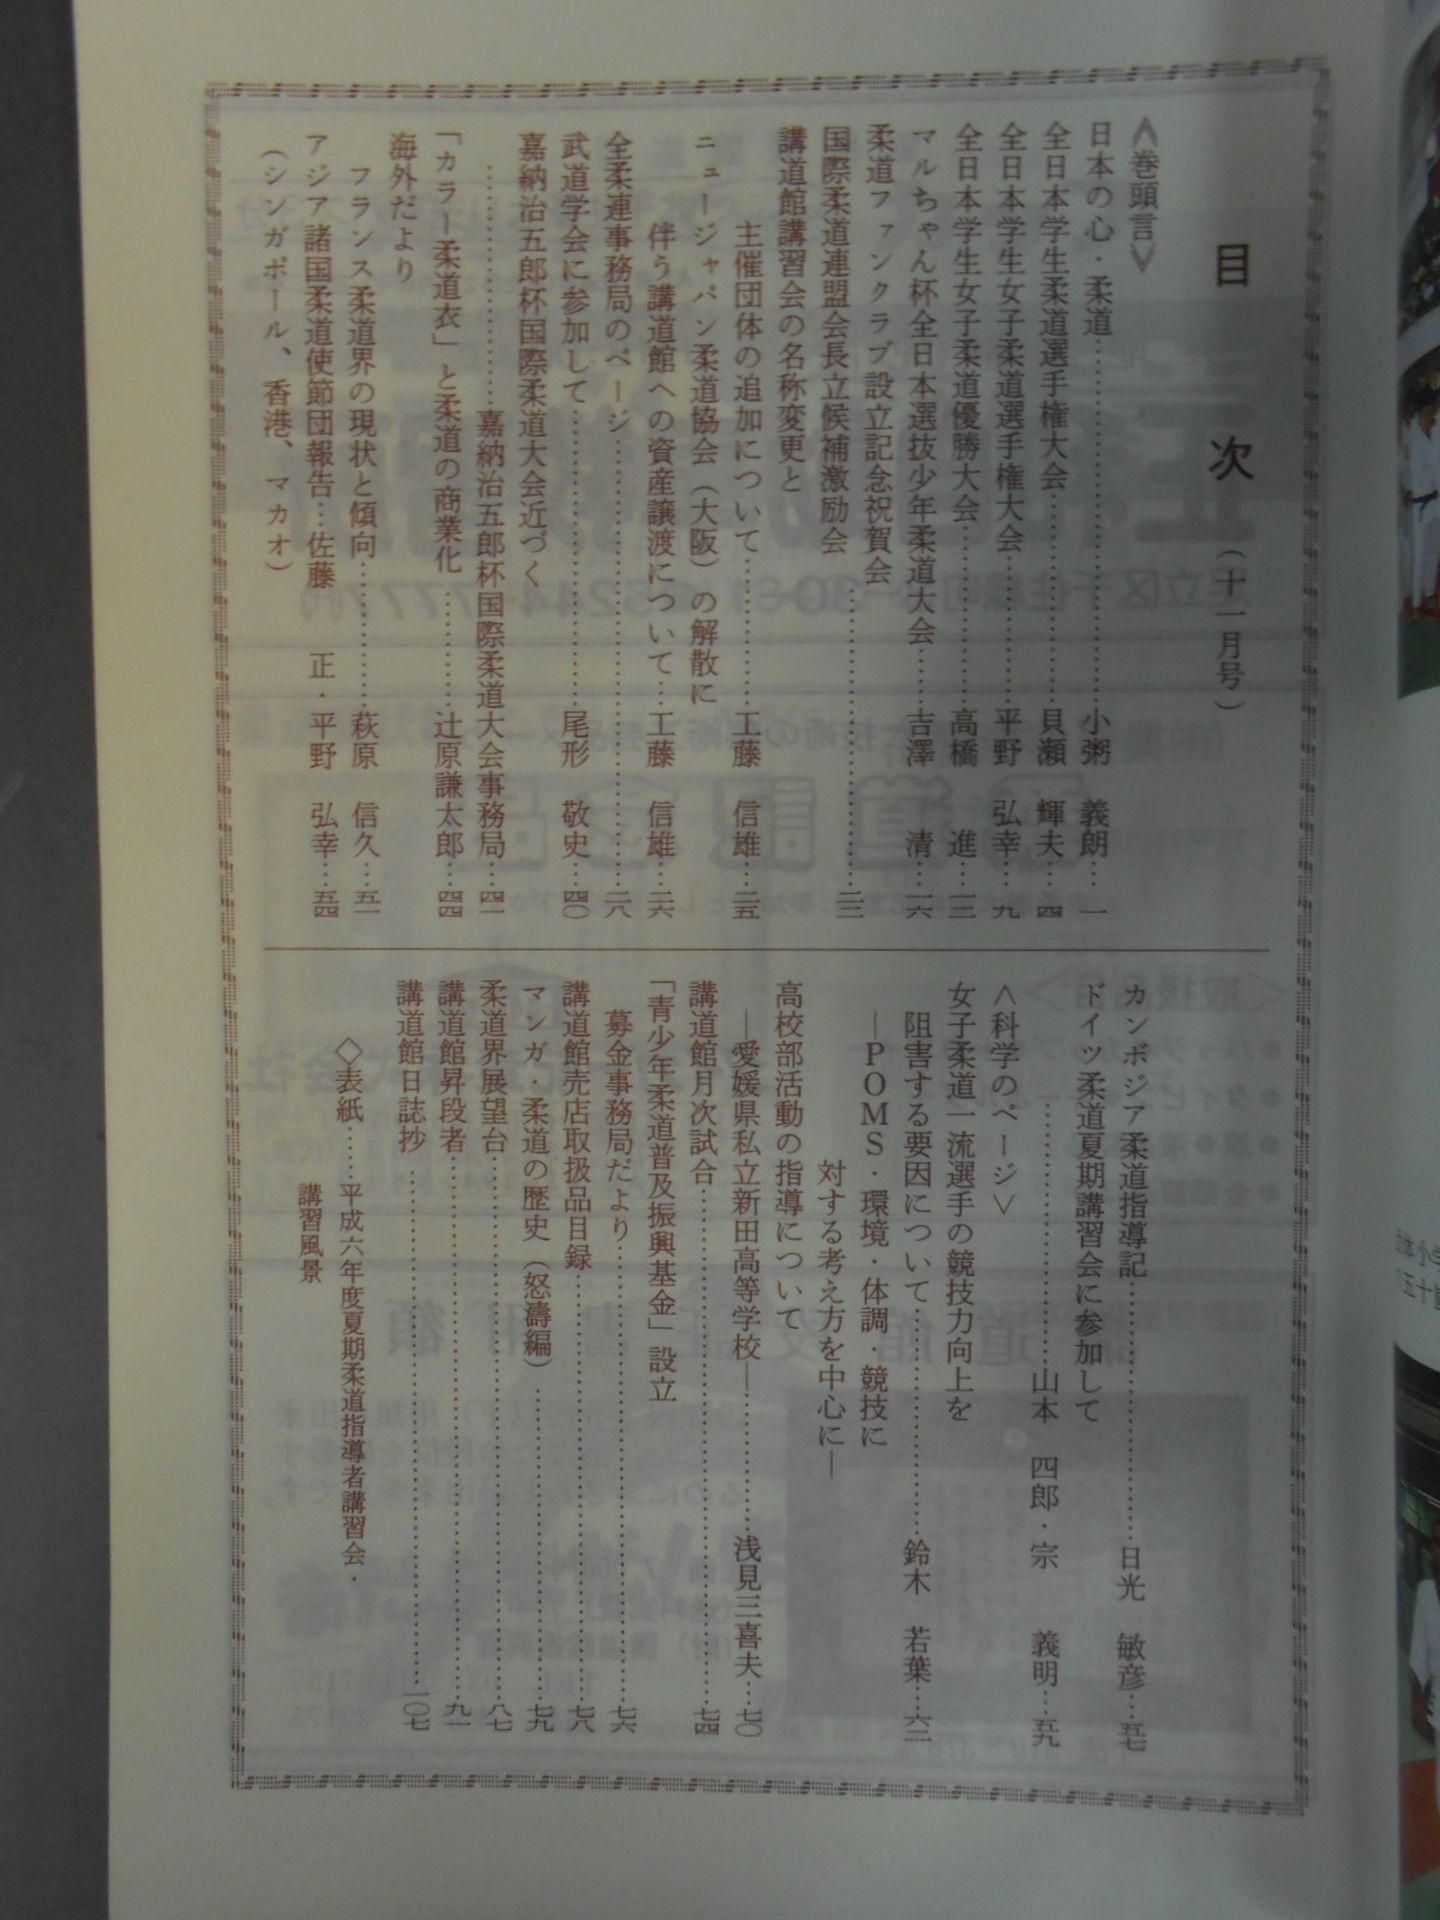 目次（十一月号）
＜巻頭言＞
日本の心・柔道……小粥　義朗…一
全日本学生柔道選手権大会……貝瀬　輝夫…四
全日本学生女子柔道選手権大会……平野　弘幸…九
全日本学生女子柔道優勝大会……高橋　進…一三
マルちゃん杯全日本選抜少年柔道大会……吉澤　清…一六
柔道ファンクラブ設立記念祝賀会
国際柔道連盟会長立候補激励会……二三
講道館講習会の名称変更と
主催団体の追加について……工藤　信雄…二五
ニュージャパン柔道協会（大阪）の解散に
伴う講道館への資産譲渡について…工藤　信雄…二六
全柔連事務局のページ……二八
武道学会に参加して……尾形　敬史…四〇
嘉納治五郎杯国際柔道大会近づく
……嘉納治五郎杯国際柔道大会事務局…四一
「カラー柔道衣」と柔道の商業化……辻原謙太郎…四四
海外だより
フランス柔道界の現状と傾向……萩原　信久…五一
アジア諸国柔道使節団報告…佐藤　正・平野　弘幸…五四
（シンガポール、香港、マカオ）
カンボジア柔道指導記……日光　敏彦…五七
ドイツ柔道夏期講習会に参加して
……山本　四郎・宗　義明…五九
＜科学のページ＞
女子柔道一流選手の競技力向上を
阻害する要因について……鈴木　若葉…六二
―POMS・環境・体調・競技に
対する考え方を中心に―
高校部活動の指導について
―愛媛県私立新田高等学校―……浅見三喜夫…七〇
講道館月次試合……七四
「青少年柔道普及振興基金」設立
募金事務局だより……七六
講道館売店取扱品目録……七八
マンガ・柔道の歴史（怒濤編）……七九
柔道界展望台……八七
講道館昇段者……九一
講道館日誌抄……一〇七
◇表紙……平成六年度夏期柔道指導者講習会・
講習風景